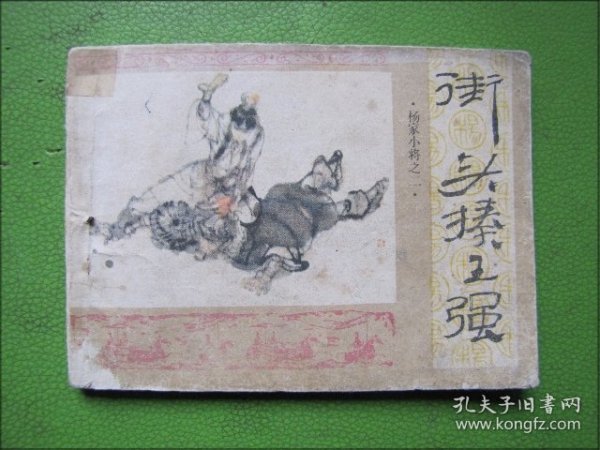 街头揍王强
·杨家小将之一·
孔夫子旧书网
www.kongfz.com